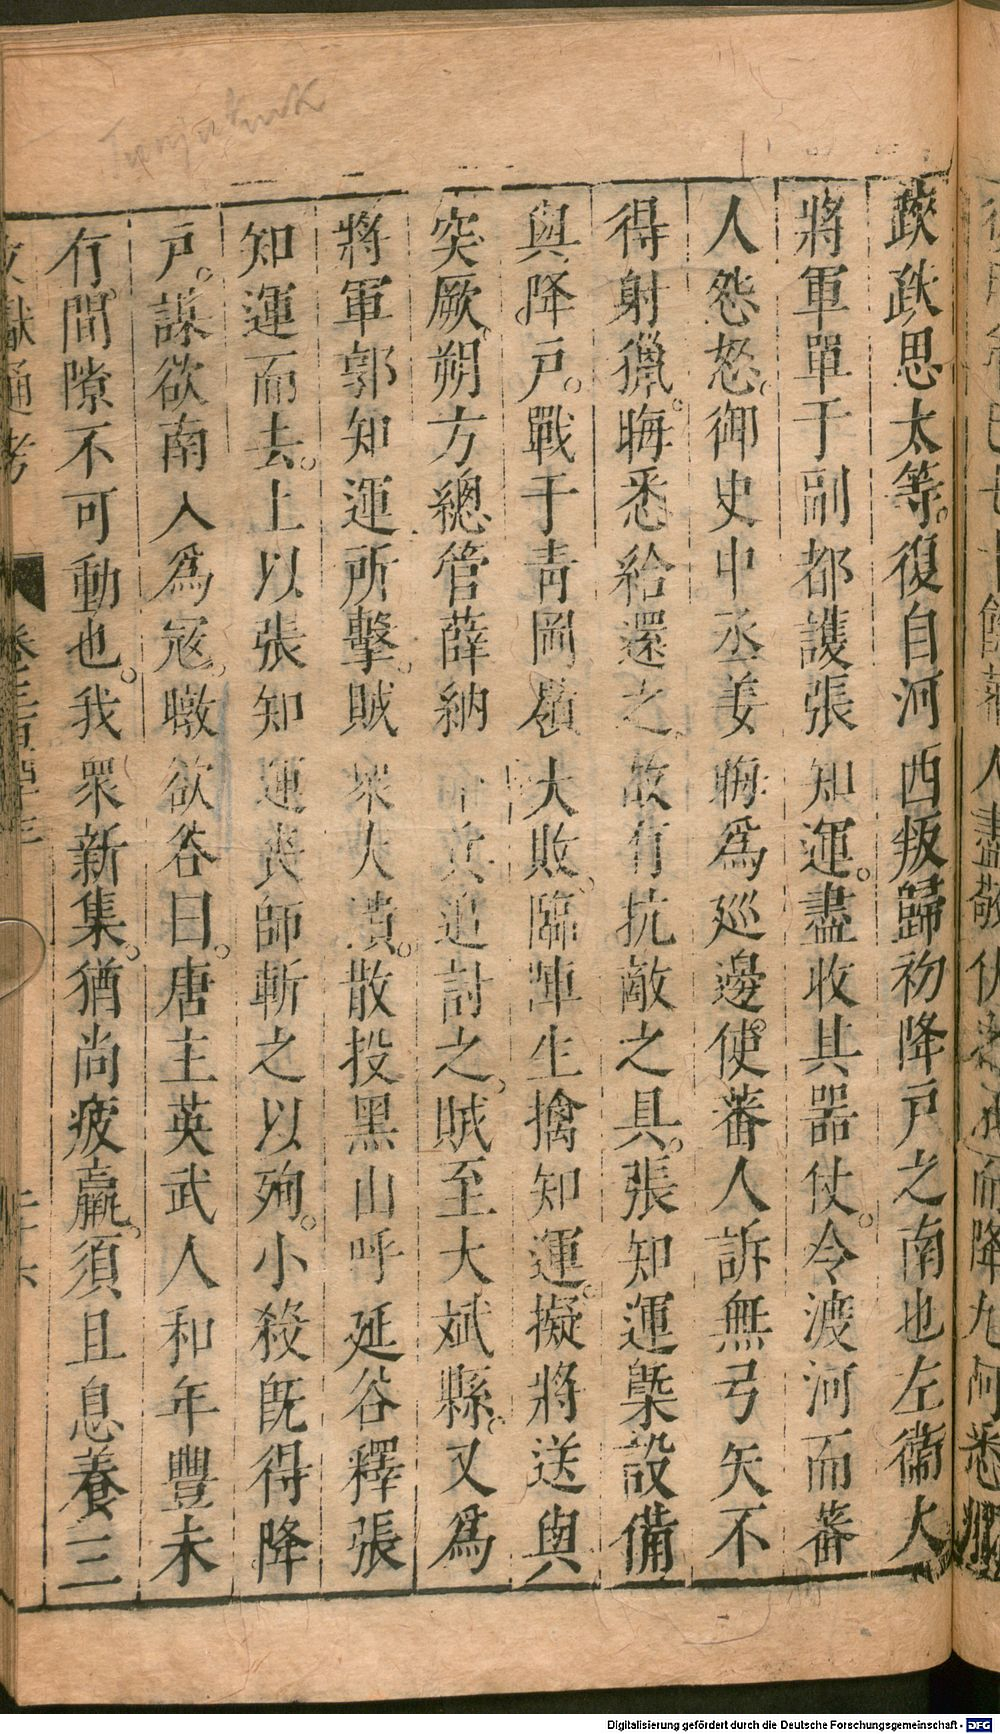 䟦跌思太等復自河西叛歸初降戸之南也左衞大
將軍單于副都護張知運盡收其器仗令渡河而蕃
人怨怒御史中丞姜晦爲廵邊使蕃人訴無弓矢不
得射獵晦悉給還之故有抗敵之具張知運槩設備
與降戸戰于青岡嶺大敗臨陣生擒知運擬將送與
突厥朔方總管薛納 兵追討之賊至大斌縣又爲
將軍郭知運所擊賊衆大潰散投黑山呼延谷釋張
知運而去上以張知運喪師斬之以殉小殺旣得降
戸謀欲南入爲冦暾欲谷曰唐主英武人和年豐未
有間隙不可動也我衆新集猶尚疲羸須且息養三
文獻通考
Digitalisierung gefördert durch die Deutsche Forschungsgemeinschaft - DFG